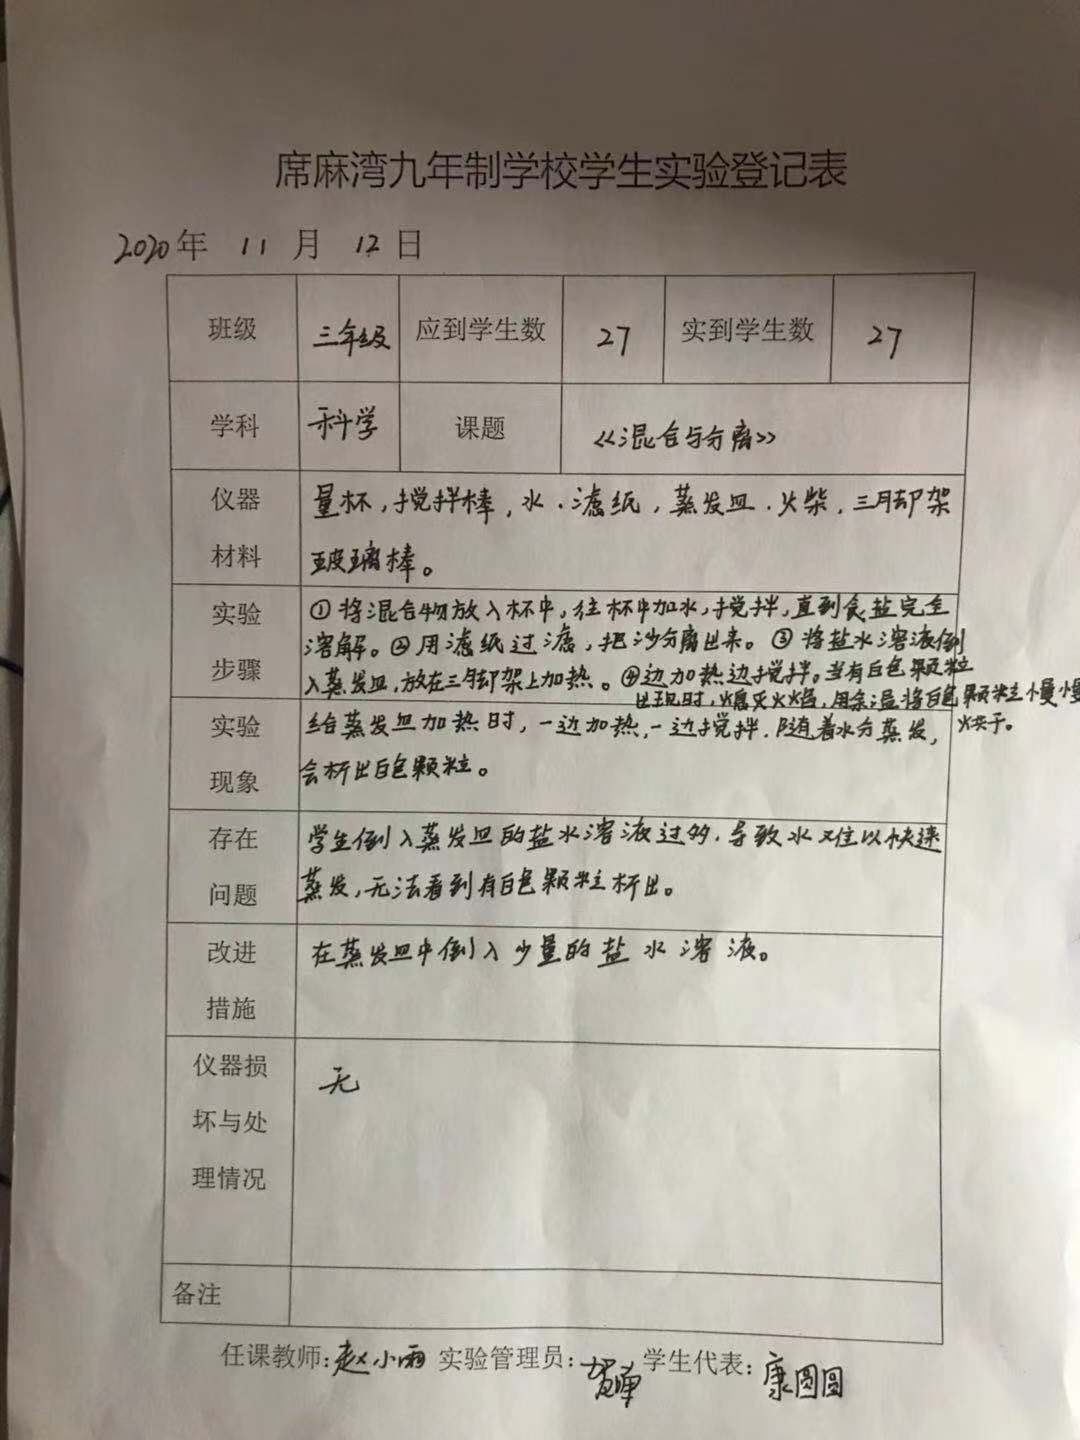 席麻湾九年制学校学生实验登记表
2020年 11 月 12 日
班级 三年级 应到学生数 27 实到学生数 27
学科 科学 课题 《混合与分离》
仪器材料
量杯,搅拌棒,水.滤纸,蒸发皿.火柴.三月却架
玻璃棒。
实验步骤
①将混合物放入杯中,往杯中加水,搅拌,直到食盐完全
溶解。②用滤纸过滤,把沙分离出来。③将盐水溶液倒
入蒸发皿,放在三月却架上加热。④边加热边搅拌。当有白色颗粒
出现时,熄灭火焰,用余温将白色颗粒慢慢
烘干。
实验现象
给蒸发皿加热时,一边加热,一边搅拌.随着水分蒸发,
会析出白色颗粒。
存在问题
学生倒入蒸发皿的盐水溶液过多.导致水难以快速
蒸发,无法看到有白色颗粒析出。
改进措施
在蒸发皿中倒入少量的盐水溶液。
仪器损坏与处理情况
无
备注
任课教师:赵小雨 实验管理员: 学生代表:康圆圆